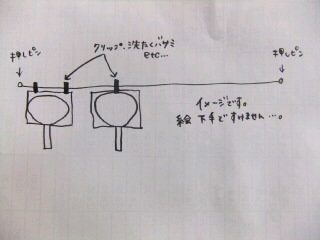 クリップ、洗たくバサミ
etc…
押しピン
押しピン
イメージです。
絵 下手ですけません…。